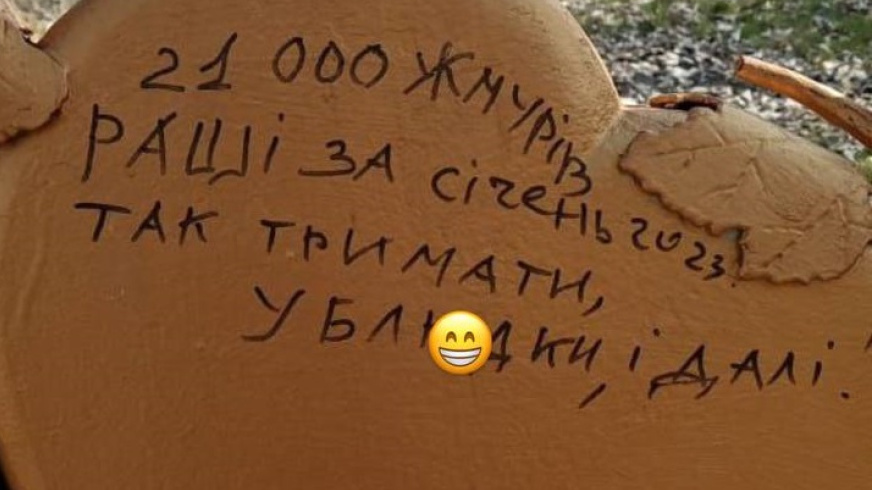 21 000 ЖМУРІВ
РАШІ ЗА СІЧЕНЬ 2023
ТАК ТРИМАТИ,
УБЛЮДКИ, І ДАЛІ!